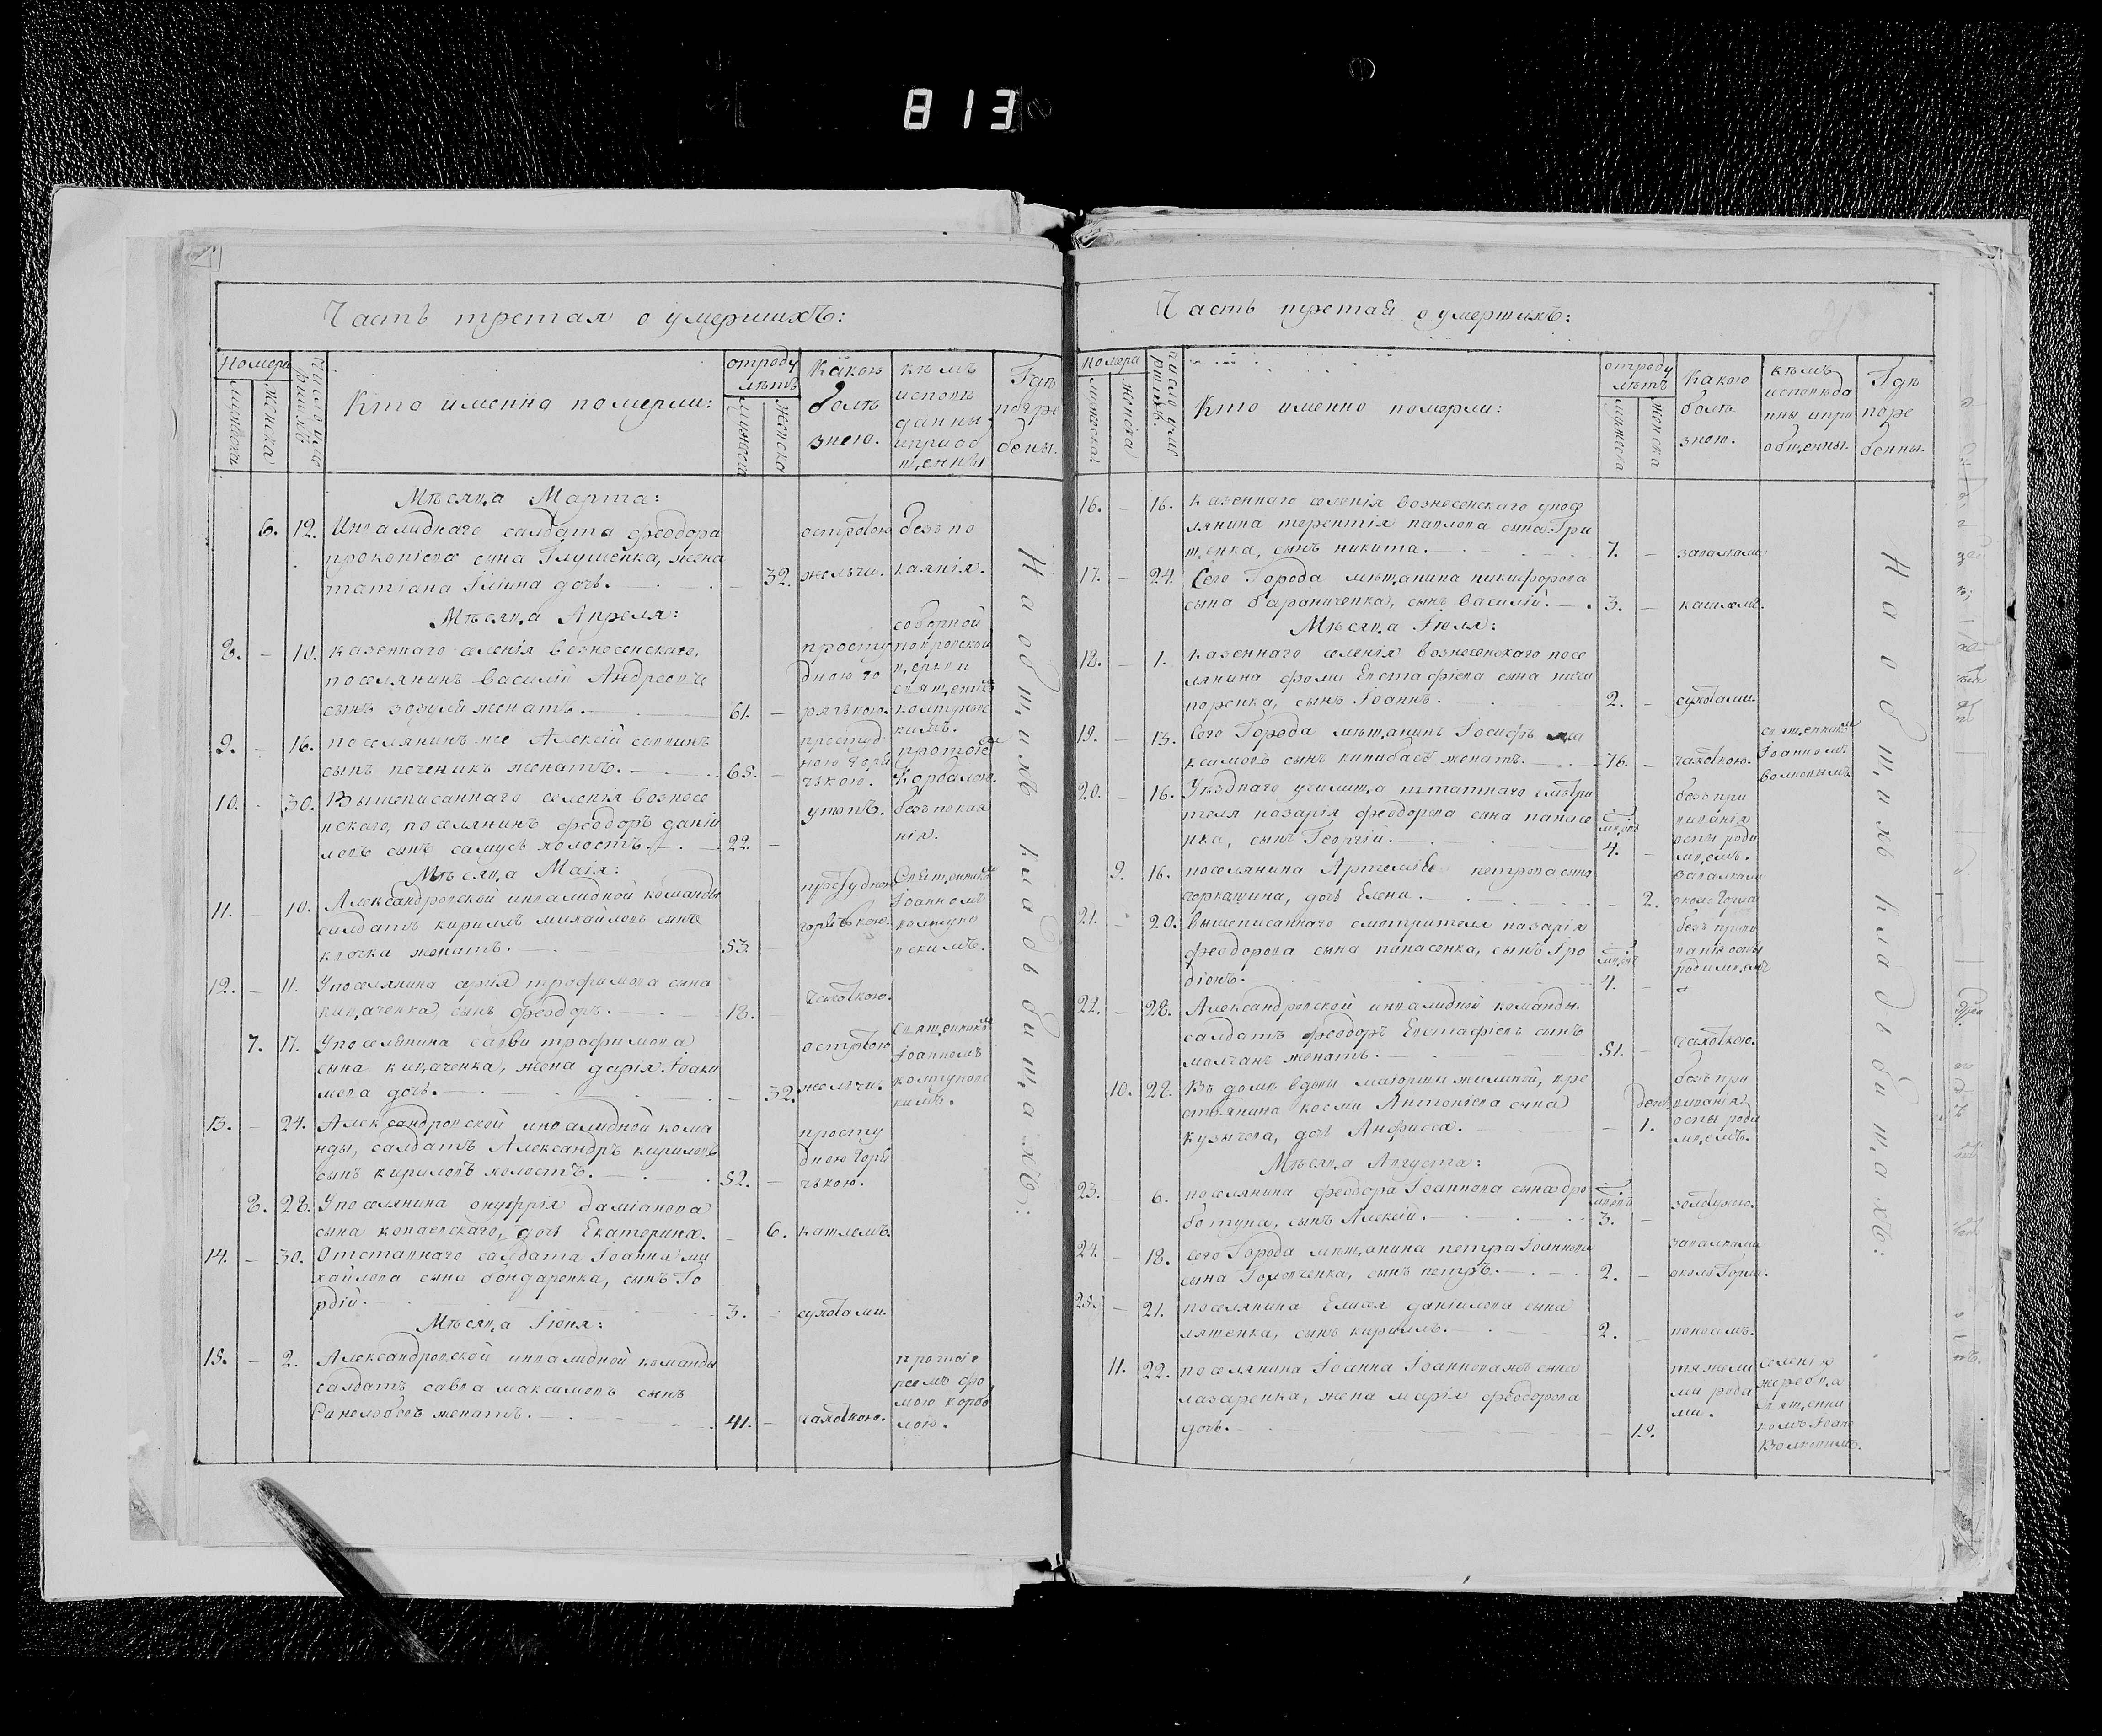 813
Часть третая о умершихъ:
Номеръ
мужеска
женска
Число умершихъ
Кто именно померли:
отроду лѣтъ
мужеска
женска
Какою
болѣ
знею.
кѣмъ
исповѣ
даны
и приоб
щенны
Гдѣ
погре
бены.
Мѣсяца Марта:
6. 12. Инвалиднаго салдата феодора острою безъ по
прокопіева сына Глущенка, жена
татіана Іліина дочь. — 32. желчи. каянія.
Мѣсяца Апреля:
8. — 10. казеннаго селенія вознесенскаго,
поселянинъ василій Андреевъ
сынъ зозуля женатъ. — 61. —
простудною горячкою.
соборной
покровской
церкви
священникомъ
9. — 16. поселянинъ же Алексій
сынъ печеникъ женатъ. — 65. —
простуд
ною горя
чкою.
протоіе
10. — 30. Вышеписаннаго селенія вознесе
нскаго, поселянинъ феодоръ даніи
ловъ сынъ самусь холостъ. — 22. —
утопъ. безъ покая
нія.
Мѣсяца Маія:
11. 10. Александровской инвалидной команды
салдатъ кириллъ михайловъ сынъ
клочка женатъ. — 53. —
простудною
горячкою.
Священникомъ
Іоанномъ
12. — 11. У поселянина трофимова сына
кицаченка, сынъ феодоръ. — 18. —
чахоткою.
7. 17. У поселянина саввы трофимова
сына кицаченка, жена дарія Іоаки
мова дочь. — 32.
острою
желчи.
Священникомъ
Іоанномъ
13. — 24. Александровской инвалидной кома
нды, салдатъ Александръ кириловъ
сынъ кириловъ холостъ. — 52. —
просту
дною горя
чкою.
8. 28. У поселянина онуфрія даміанова
сына копаевскаго, дочь Екатерина. — 6. кашлемъ.
14. — 30. Отставнаго салдата Іоанна ми
хайлова сына бондаренка, сынъ Го
рдій. 3. — сухотами.
Мѣсяца Іюня:
15. — 2. Александровской инвалидной команды
салдатъ савва максимовъ сынъ
Синелобовъ женатъ. — 41. — чахоткою.
протоіе
реемъ фо
мою корбо
лою.
На общихъ кладьбищахъ:
Часть третая о умершихъ:
номера
мужеска
женска
число умершихъ
Кто именно померли:
отроду
лѣтъ
мужеска
женска
Какою
болѣ
знею.
кѣмъ
исповѣда
ны и прио
общенны.
Гдѣ
погре
бенны.
16. — 16. казеннаго селенія вознесенскаго у посе
лянина терентія павлова сына Гри
щенка, сынъ никита. — 7. — запалками
17. — 24. Сего Города мѣщанина никифорова
сына бараниченка, сынъ василій. — 3. — кашлемъ.
Мѣсяца Іюля:
18. — 1. казеннаго селенія вознесенскаго посе
лянина фомы Евстафіева сына ничи
поренка, сынъ Іоаннъ. 2. — сухотами.
19. — 13. Сего Города мѣщанинъ Іосифъ ма
ксимовъ сынъ кинибасъ женатъ. — 76. — чахоткою.
священникомъ
Іоанномъ
Волковымъ
20. — 16. Уѣзднаго училища штатнаго смотри
теля назарія феодорова сына панасе
нка, сынъ Георгій. — 4. —
безъ при
вивания
оспы роди
мцемъ.
9. 16. поселянина Артемія петрова сына
чоркащина, дочь Елена. — 2.
запалками
около Горла
21. — 20. вышеписаннаго смотрителя назарія
феодорова сына панасенка, сынъ Іро
діонъ. — 4. —
22. — 28. Александровской инвалидной команды
салдатъ феодоръ Евстафіевъ сынъ
молчанъ женатъ. — 51. — чахоткою.
10. 28. Въ домѣ вдовы маіорши жилиной, кре
стьянина космы Антоніева сына
кузычева, дочь Анфисса. — 1.
безъ при
вивания
оспы роди
мцемъ.
Мѣсяца Августа:
23. — 6. поселянина феодора Іоаннова сына
ботуна, сынъ Алексій. — 3. —
24. — 18. Сего Города мѣщанина петра Іоаннова
сына сынъ петръ. — 2. —
запалками
около Горла.
25. — 21. поселянина Елисея даніилова сына
ляшенка, сынъ кириллъ. — 2. — поносомъ.
11. 22. поселянина Іоанна Іоанноважъ сына
лазаренка, жена марія феодорова
дочь. — 18.
тяжкими родами.
селенія
жеребца
священни
комъ Іоан
Волковымъ.
На общихъ кладьбищахъ: